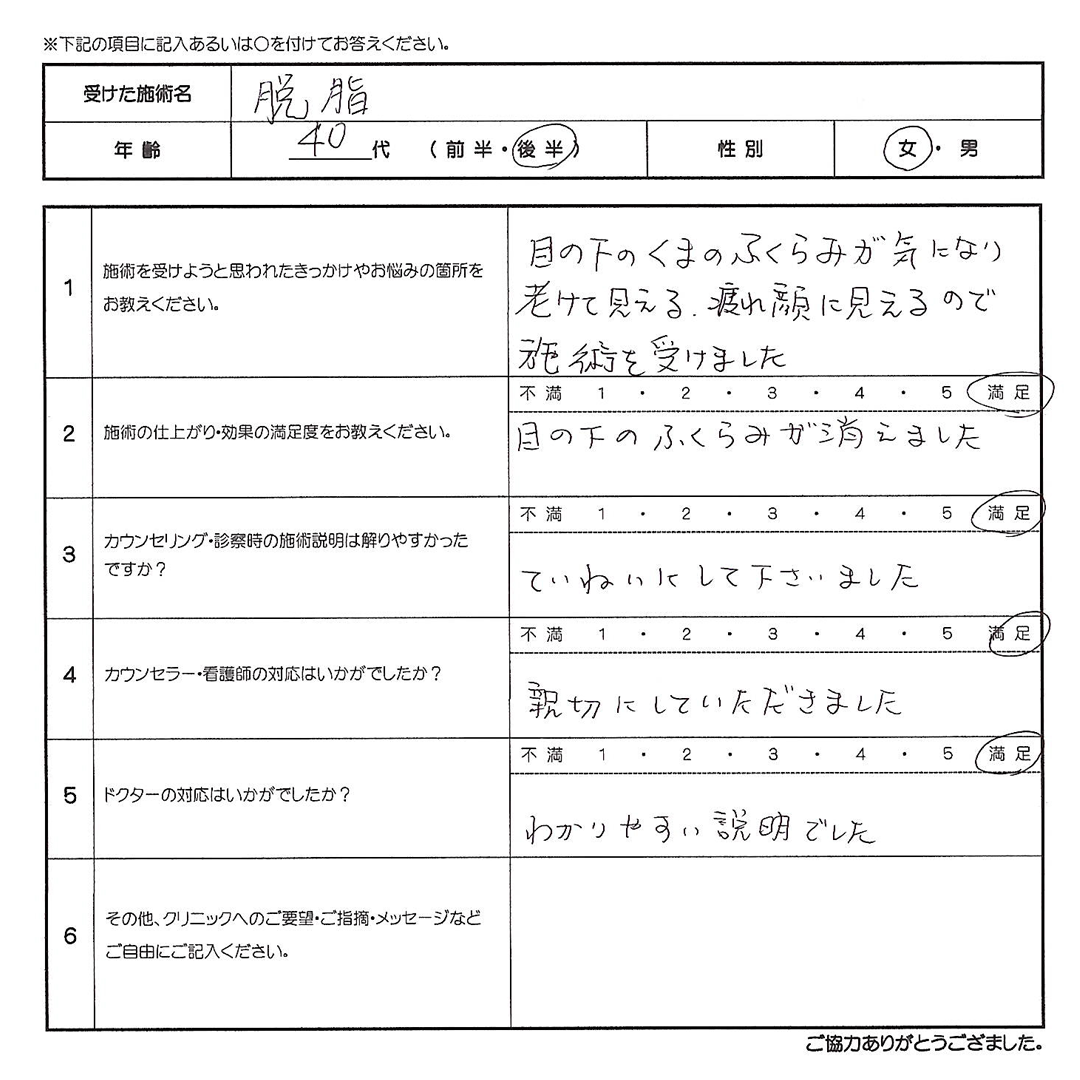 ※下記の項目に記入あるいは○を付けてお答えください。
受けた施術名 脱脂
年齢 40代 (前半・後半) 性別 女・男
1 施術を受けようと思われたきっかけやお悩みの箇所を
お教えください。
目の下のくまのふくらみが気になり
老けて見える.疲れ顔に見えるので
施術を受けました
2 施術の仕上がり・効果の満足度をお教えください。
不満 1 ・ 2 ・ 3 ・ 4 ・ 5 満足
目の下のふくらみが消えました
3 カウンセリング・診察時の施術説明は解りやすかった
ですか？
不満 1 ・ 2 ・ 3 ・ 4 ・ 5 満足
ていねいにして下さいました
4 カウンセラー・看護師の対応はいかがでしたか？
不満 1 ・ 2 ・ 3 ・ 4 ・ 5 満足
親切にしていただきました
5 ドクターの対応はいかがでしたか？
不満 1 ・ 2 ・ 3 ・ 4 ・ 5 満足
わかりやすい説明でした
6 その他、クリニックへのご要望・ご指摘・メッセージなど
ご自由にご記入ください。
ご協力ありがとうござました。